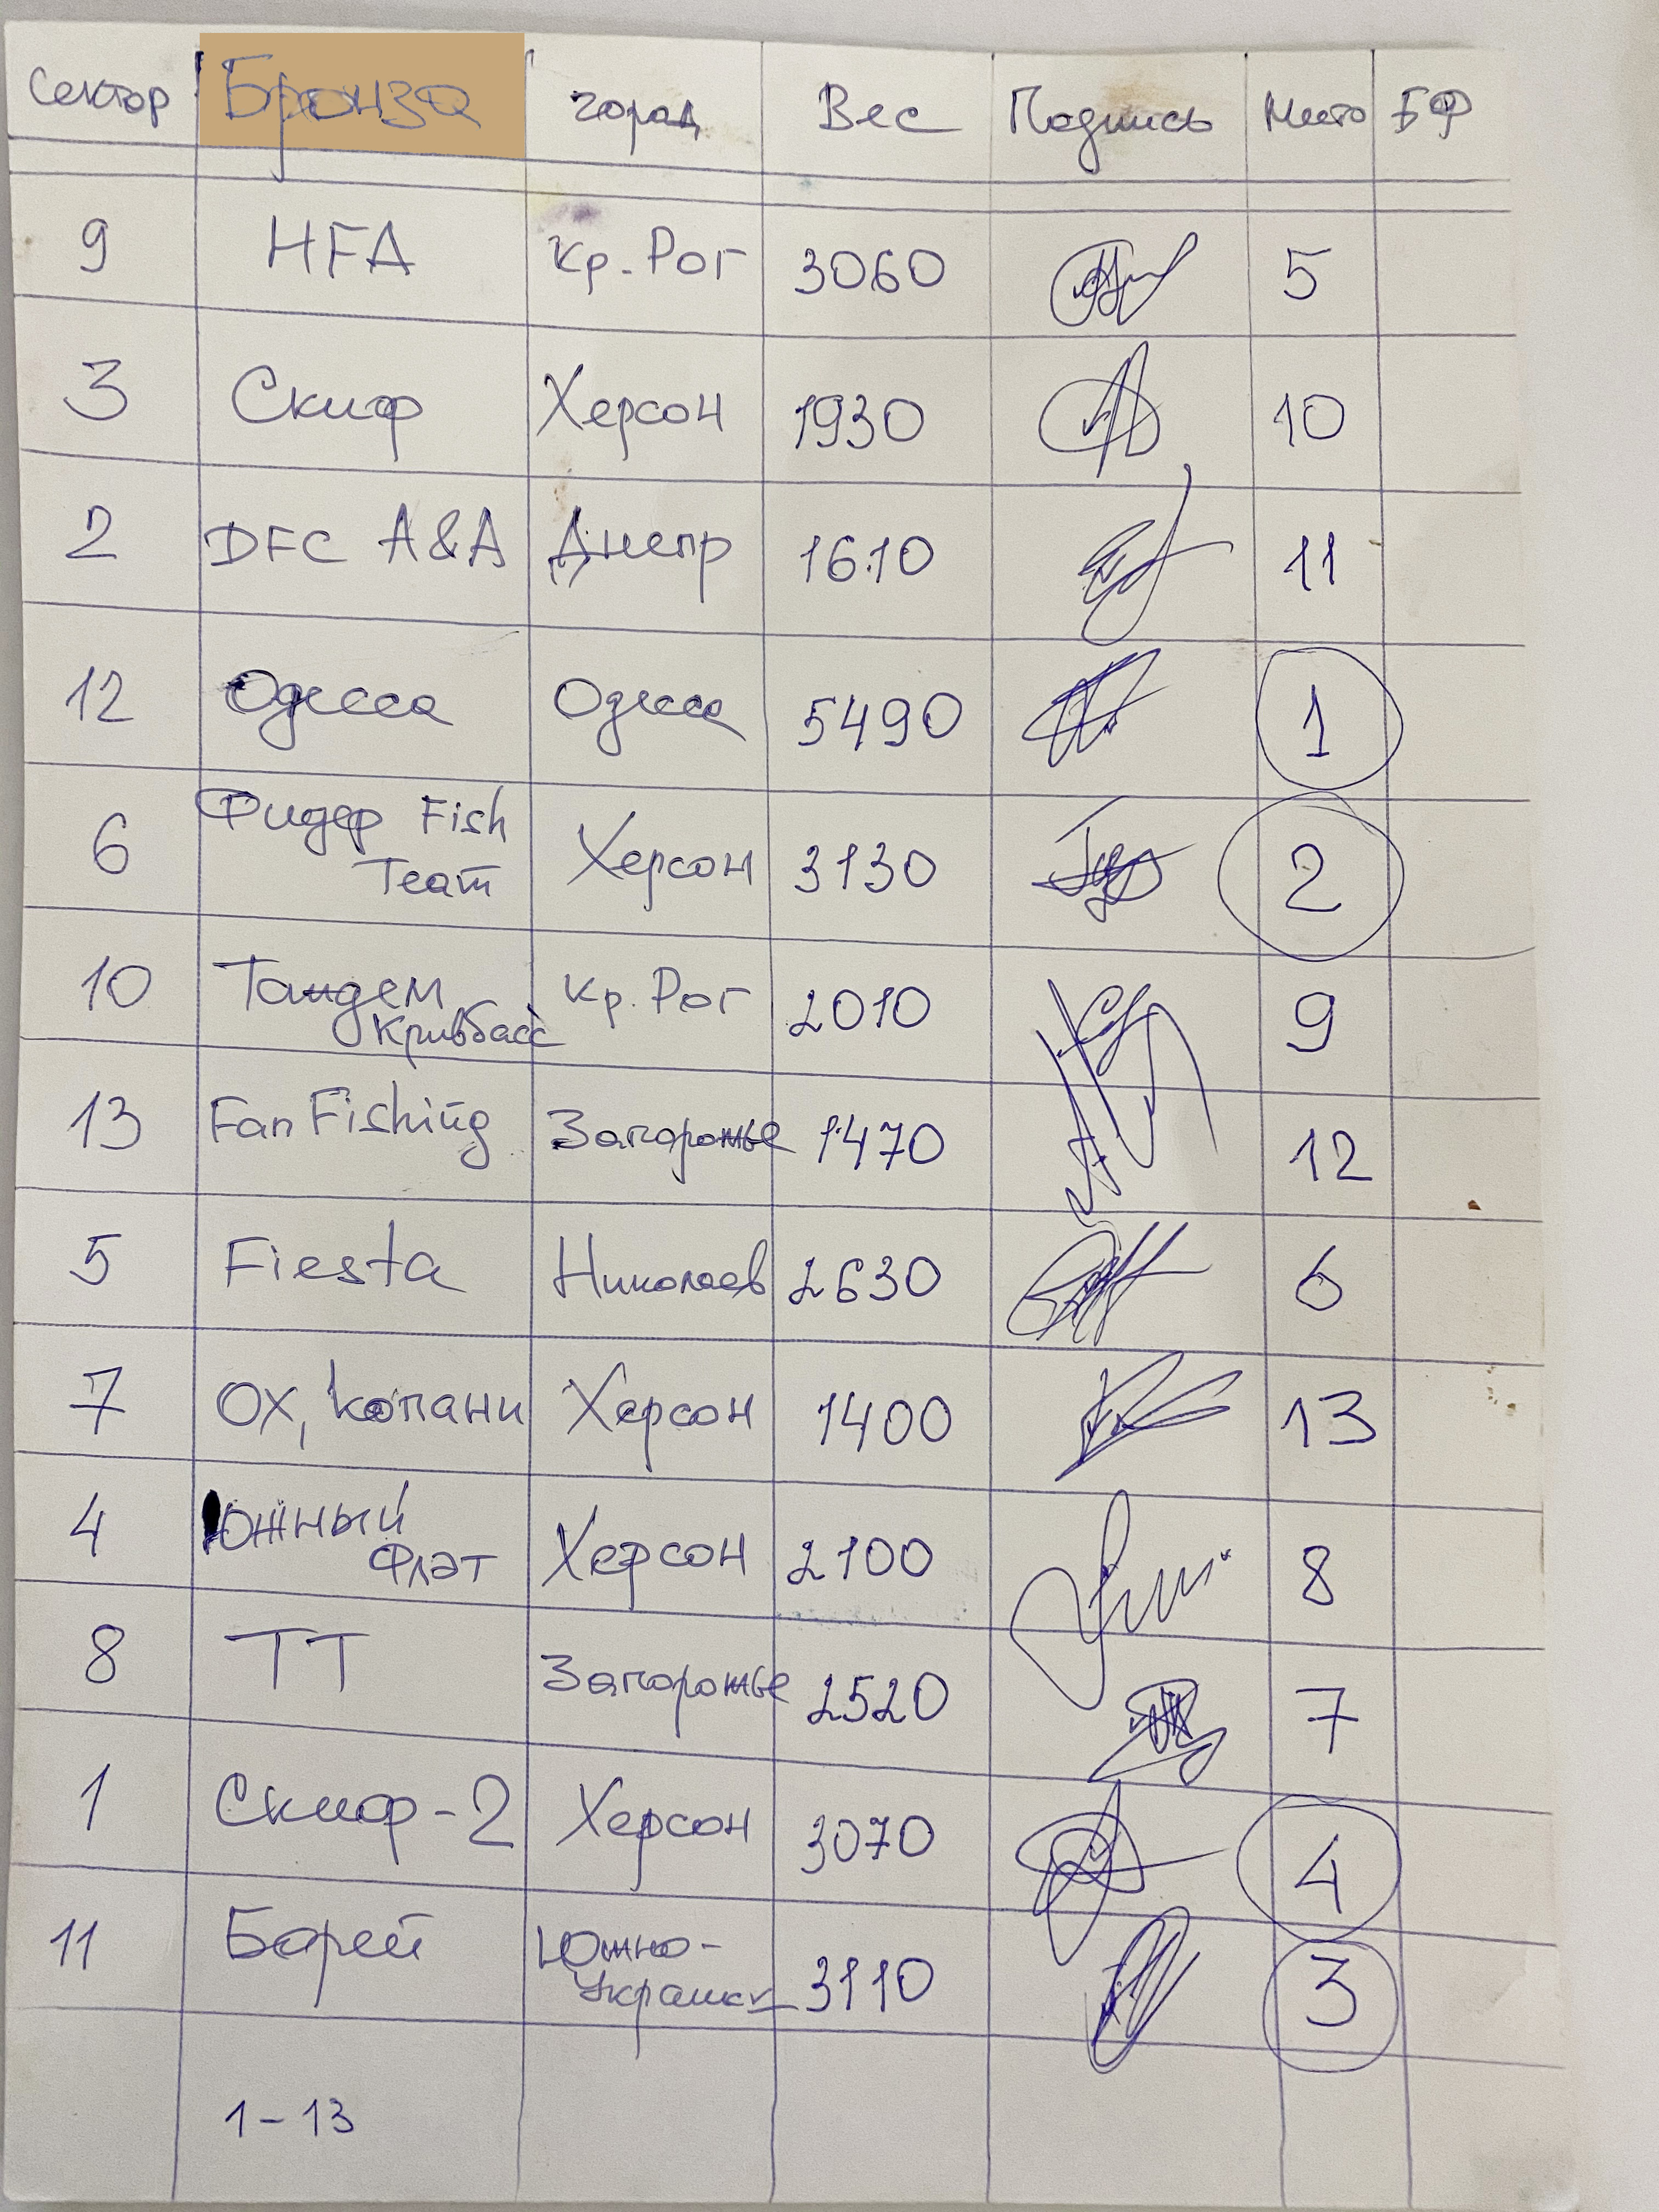 Сектор Бронза город Вес Подпись Место БФ
9 HFA Кр. Рог 3060 5
3 Скиф Херсон 1930 10
2 DFC A&A Днепр 1610 11
12 Одесса Одесса 5490 1
6 Фидер Fish Team Херсон 3130 2
10 Тандем Кривбасс Кр. Рог 2010 9
13 Fan Fishing Запорожье 1470 12
5 Fiesta Николаев 2630 6
7 ОХ, Копани Херсон 1400 13
4 Южный Флэт Херсон 2100 8
8 ТТ Запорожье 2520 7
1 Скиф-2 Херсон 3070 4
11 Барей Южно- 3110 3
1-13